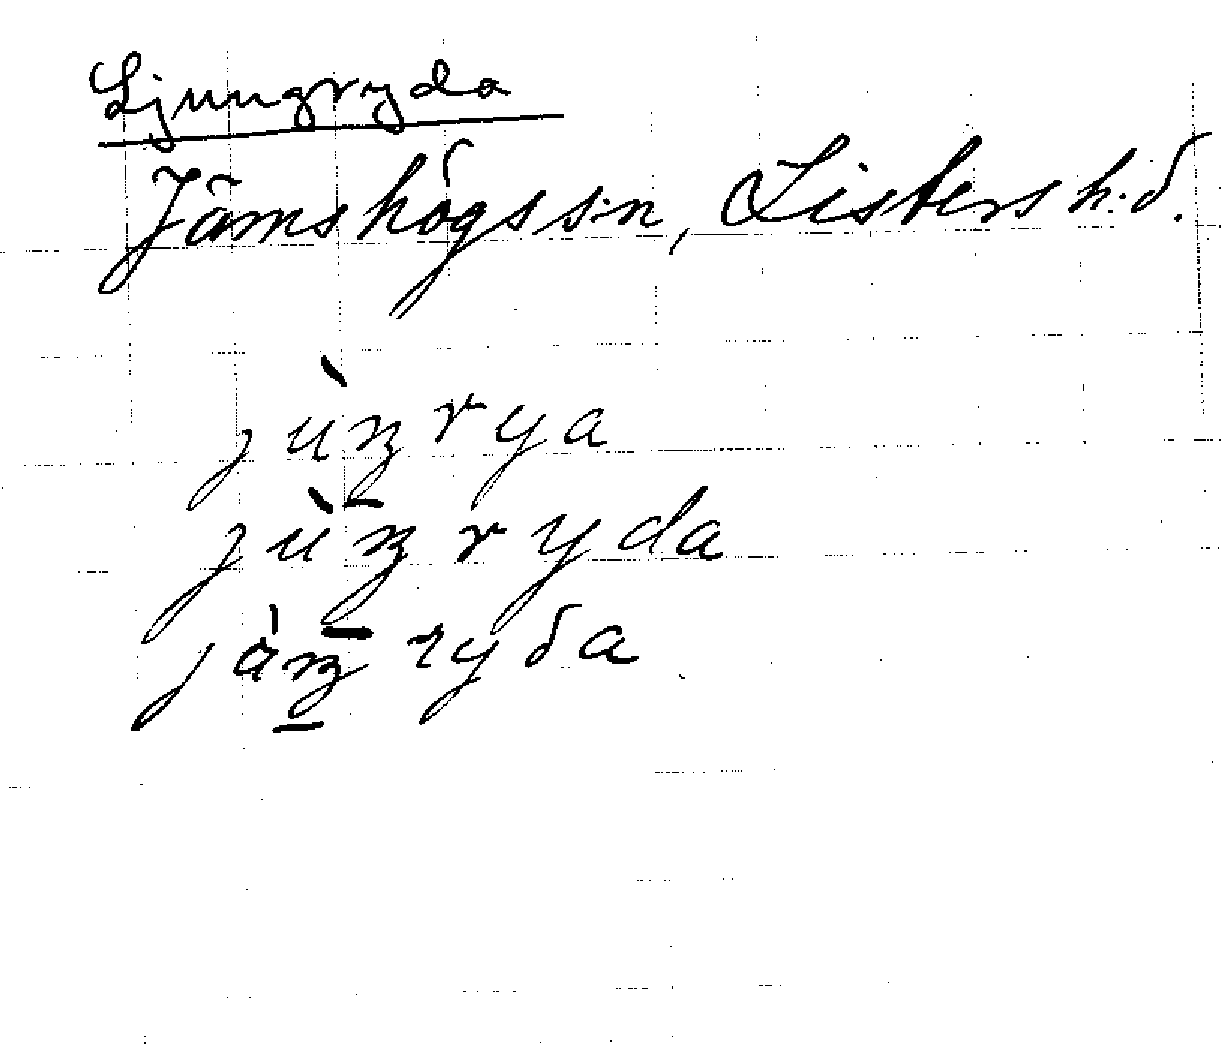 Ljungryda
Jämshögs s:n, Listers h:d.
jùŋrya
jùŋryda
jàŋryda